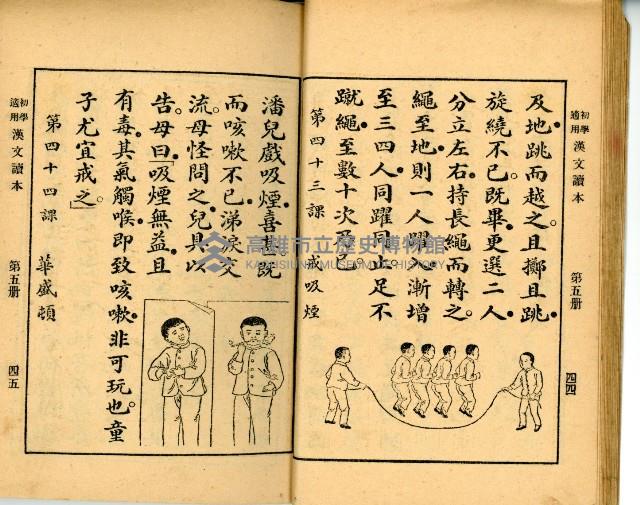 初學適用 漢文讀本 第五冊 四四
及地跳而越之。且擲且跳。
旋繞不已。既畢。更選二人。
分立左右。持長繩而轉之。
繩至地。則一人躍入。漸增
至三四人。同躍同止。足不
蹴繩。至數十次乃已。
第四十三課 戒吸煙
潘兒戲吸煙。喜甚。既
而咳嗽不已。涕淚交
流。母怪問之。兒具以
告。母曰。「吸煙無益。且
有毒。其氣觸喉。即致咳嗽。非可玩也。童
子尤宜戒之。」
第四十四課 華盛頓
初學適用 漢文讀本 第五冊 四五
高雄市立歷史博物館
KAOHSIUNG MUSEUM OF HISTORY